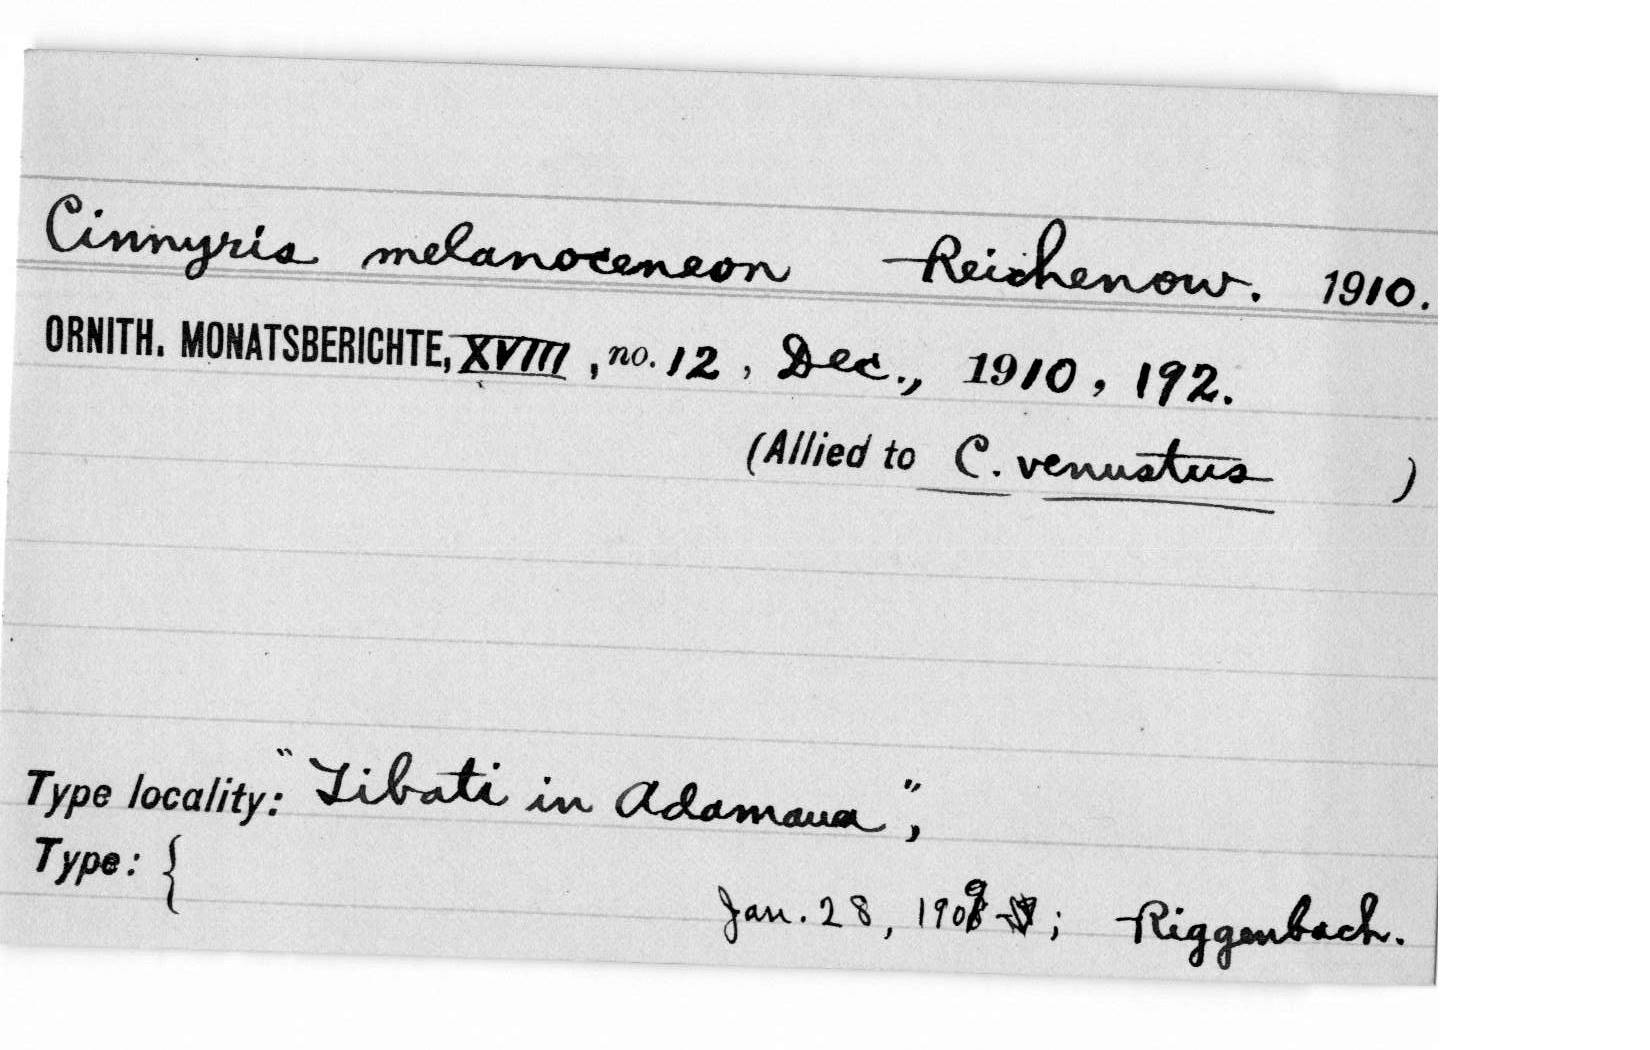 Cinnyris melanoceneon Reichenow. 1910.
ORNITH. MONATSBERICHTE, XVIII, no. 12, Dec., 1910, 192.
(Allied to C. venustus )
Type locality: "Tibati in Adamaua",
Type: {
Jan. 28, 1909 ; Riggenbach.